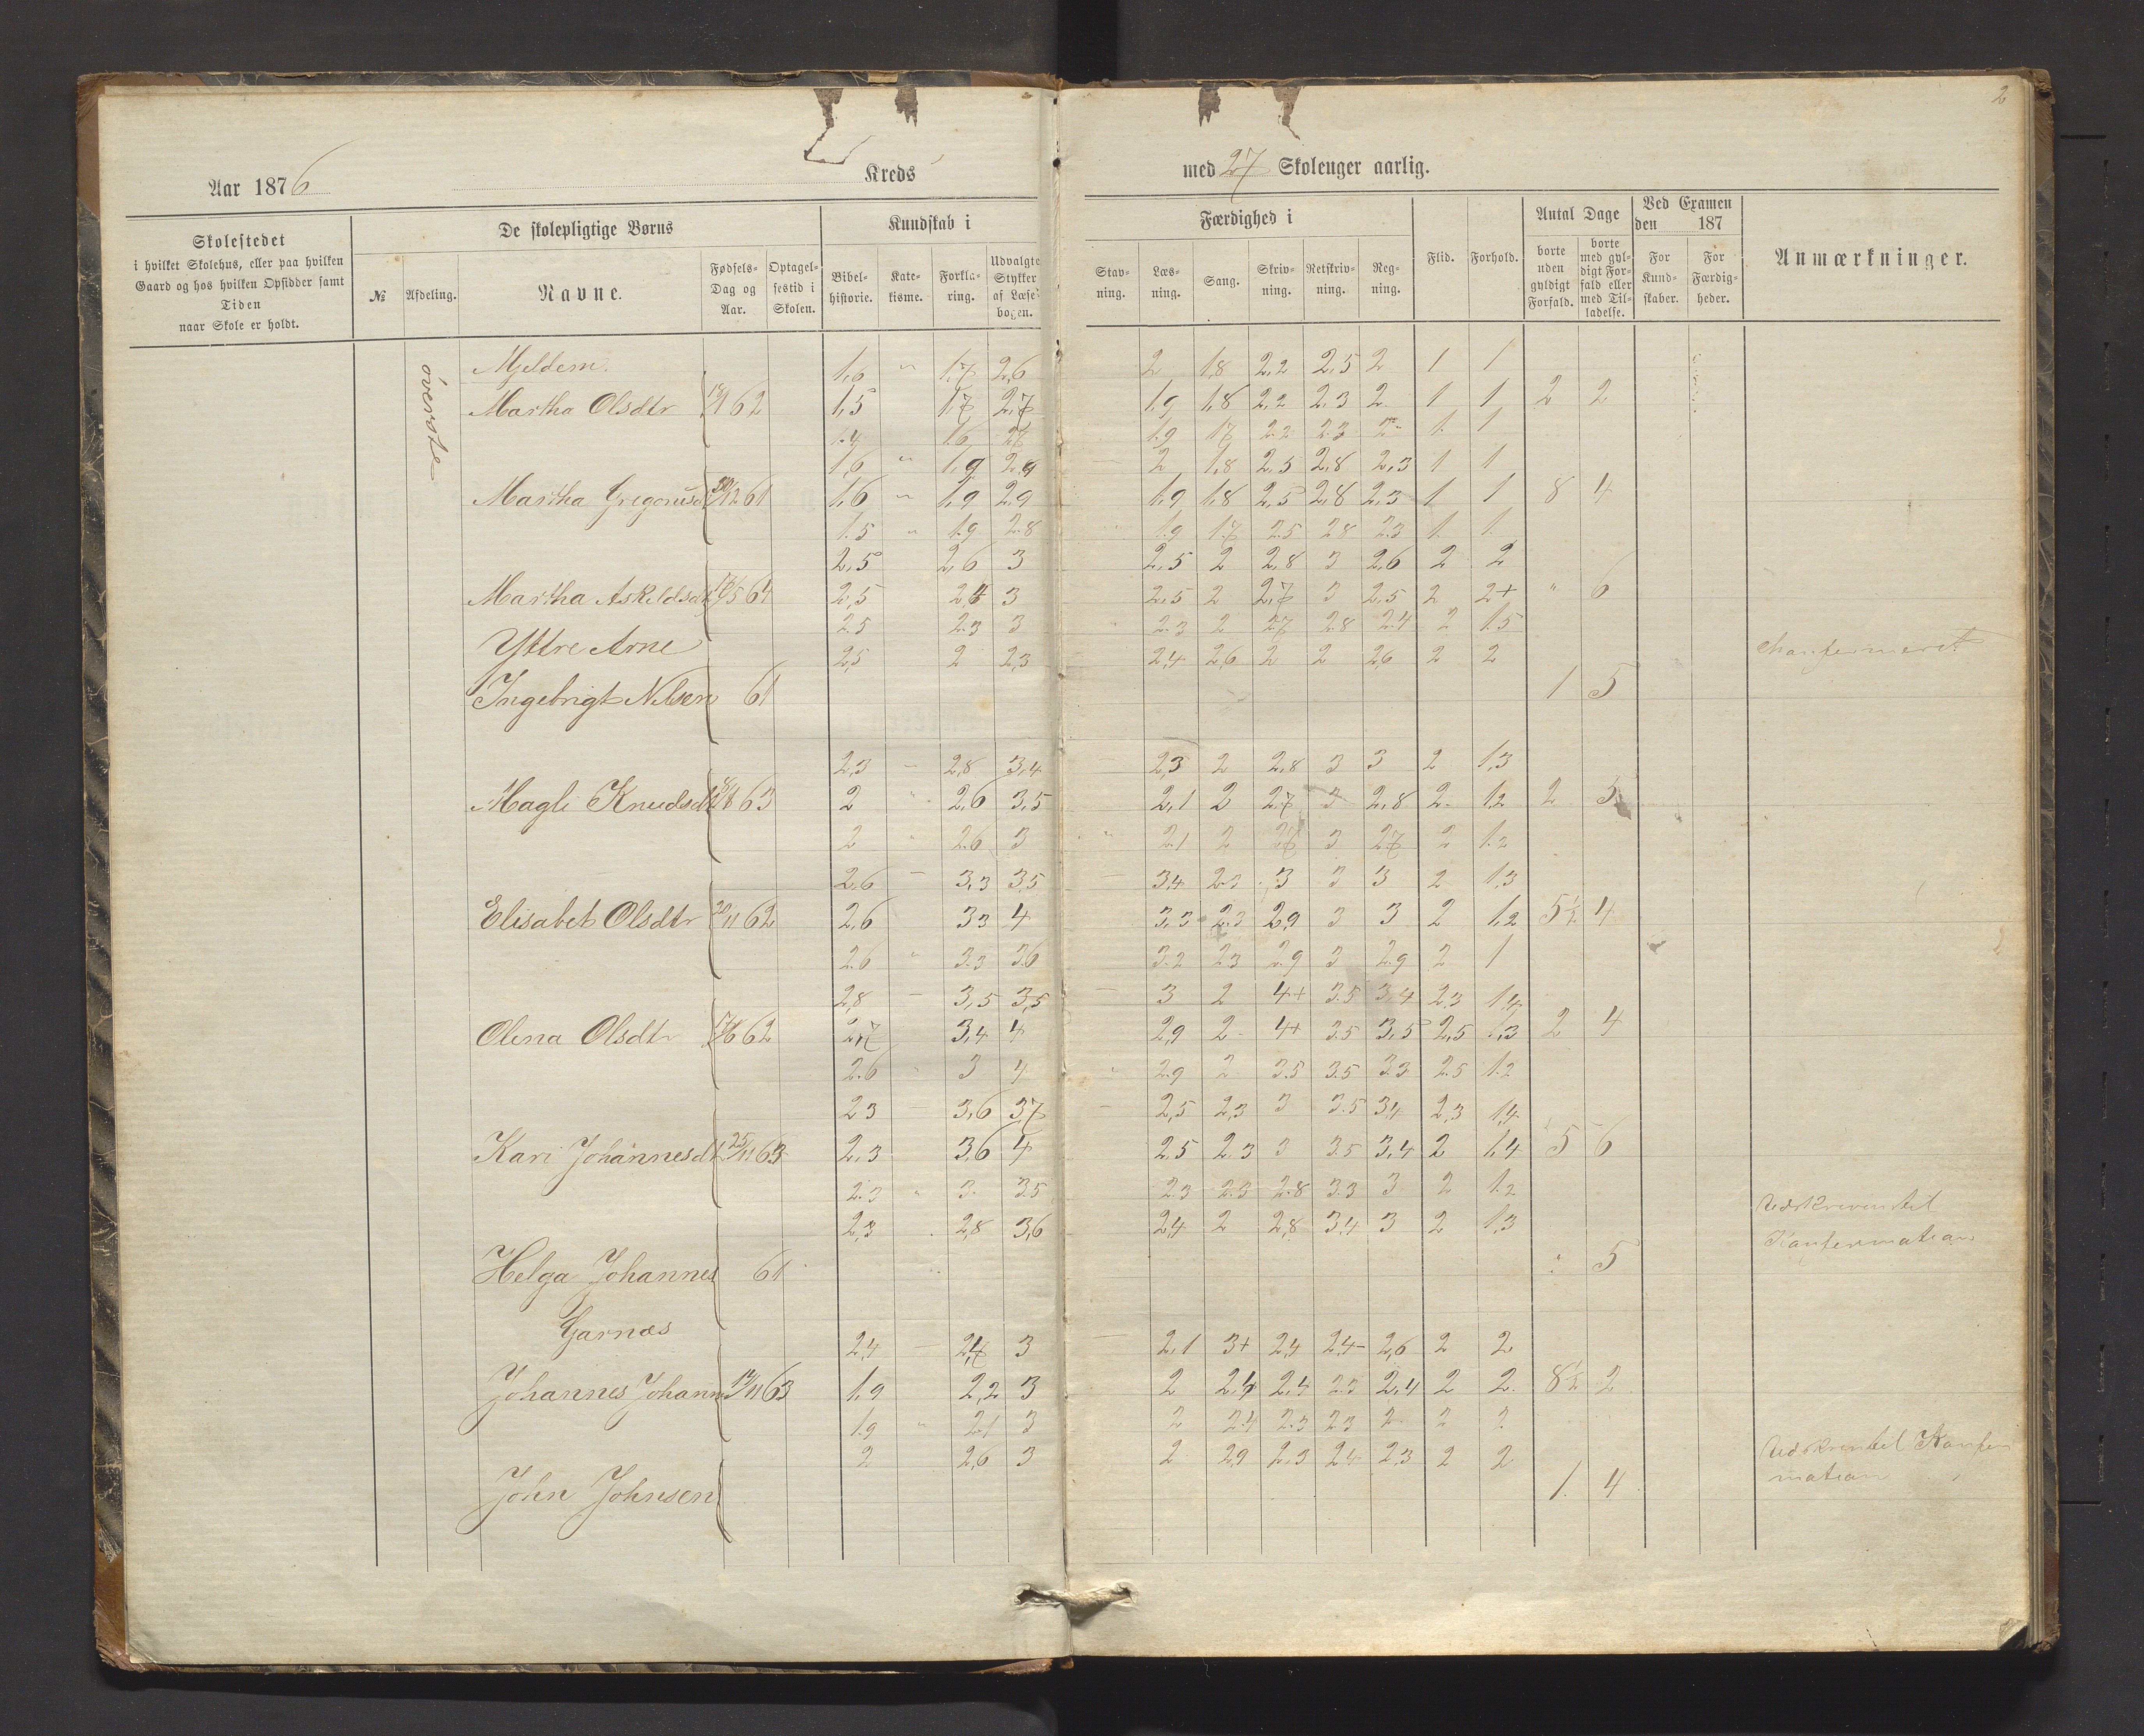 2
Aar 1876 Kreds med 27 Skoleuger aarlig.
Skolestedet
i hvilket Skolehus, eller paa hvilken
Gaard og hos hvilken Opsidder samt
Tiden
naar Skole er holdt.
De skolepligtige Børns
№
Afdeling.
Navne.
Fødsels-
Dag og
Aar.
Optagel-
sestid i
Skolen.
Kundskab i
Bibel-
historie.
Kate-
kisme.
Forkla-
ring.
Udvalgte
Stykker
af Læse-
bogen.
Færdighed i
Stav-
ning.
Læs-
ning.
Sang.
Skriv-
ning.
Retskriv-
ning.
Reg-
ning.
Flid.
Forhold.
Antal Dage
borte
uden
gyldigt
Forfald.
borte
med gyl-
digt For-
fald eller
med Til-
ladelse.
Ved Examen
den 187
For
Kund-
skaber.
For
Færdig-
heder.
Anmærkninger.
øverste
Mjeldem. 1,6 " 1,7 2,6 2 1,8 2,2 2,5 2 1 1
Martha Olsdtr 62 1,5 1,7 2,7 1,9 1,8 2,2 2,3 2 1 1 2 2
1.4 1.6 2.7 1.9 1.7 2.2 2.3 2- 1. 1
1,6 " 1,9 2,9 2 1,8 2,5 2,8 2,3 1 1
Martha Gregoriusd 30/12 61 1,6 " 1,9 2,9 1,9 1,8 2,5 2,8 2,3 1 1 8 4
1.5 " 1.9 2.8 1.9 1.7 2.5 2.8 2.3 1. 1.
2,5 2,6 3 2,5 2 2,8 3 2,6 2 2
Martha Askildsdt 64 2,5 3 2,5 2 2,7 3 2,5 2 2+ " 6
2.5 2.3 3 2.3 2 2.7 2.8 2.4 2 1.5
Yttre Arne 2,5 2 2,3 2,4 2,6 2 2 2,6 2 2 Konfirmeret
Ingebrigt Nilsen 61 1 5
2,3 - 2,8 3,4 - 2,3 2 2,8 3 3 2 1,3
Magli Knudsdt 63 2 " 2,6 3,5 2,1 2 2,7 3 2,8 2 1,2 2 3
2 " 2.6 3 " 2.1 2 2.7 3 2.7 2 1.2
2,6 - 3,3 3,5 - 3,4 2,3 3 3 3 2 1,3
Elisabet Olsdtr 20/11 62 2,6 3,3 4 3,3 2,3 2,9 3 3 2 1,2 5½ 4
2.6 " 3.3 3.6 3.2 2.3 2.9 3 2.9 2 1
2,8 - 3,5 3,5 - 3 2 4+ 3.5 3,4 2,3 1,4
Olena Olsdtr 62 2,7 3,4 4 2,9 2 4+ 3.5 3,5 2,5 1,3 2 4
2.6 " 3 4 " 2.9 2 3.5 3.5 3.3 2.5 1.2
2,3 - 3,6 3,7 - 2,5 2,3 3 3.5 3,4 2,3 1,4
Kari Johannesdt 25/11 63 2,3 3,6 4 2,5 2,3 3 3.5 3,4 2 1,4 5 6
2.3 " 3. 3.5 2.3 2.3 2.8 3.3 3 2 1.2
2,3 2,8 3,6 2,4 2 2,8 3,4 3 2 1,3 Udskreven til
Konfirmation
Helga Johannes 61 " 5
Garnæs 2,4 - 3 - 2,1 3+ 2,4 2,4- 2,6 2 2
Johannes Johann 63 1,9 2,2 3 2 2,4 2,4 2.3 2,4 2 2 8½ 2
1.9 " 2.1 3 2 2.4 2.3 2.3 2 2 2
2 2,6 3 2 2,9 2,3 2,4 2,3 2 2 Udskreven til Konfir
mation
John Johnsen 1. 4